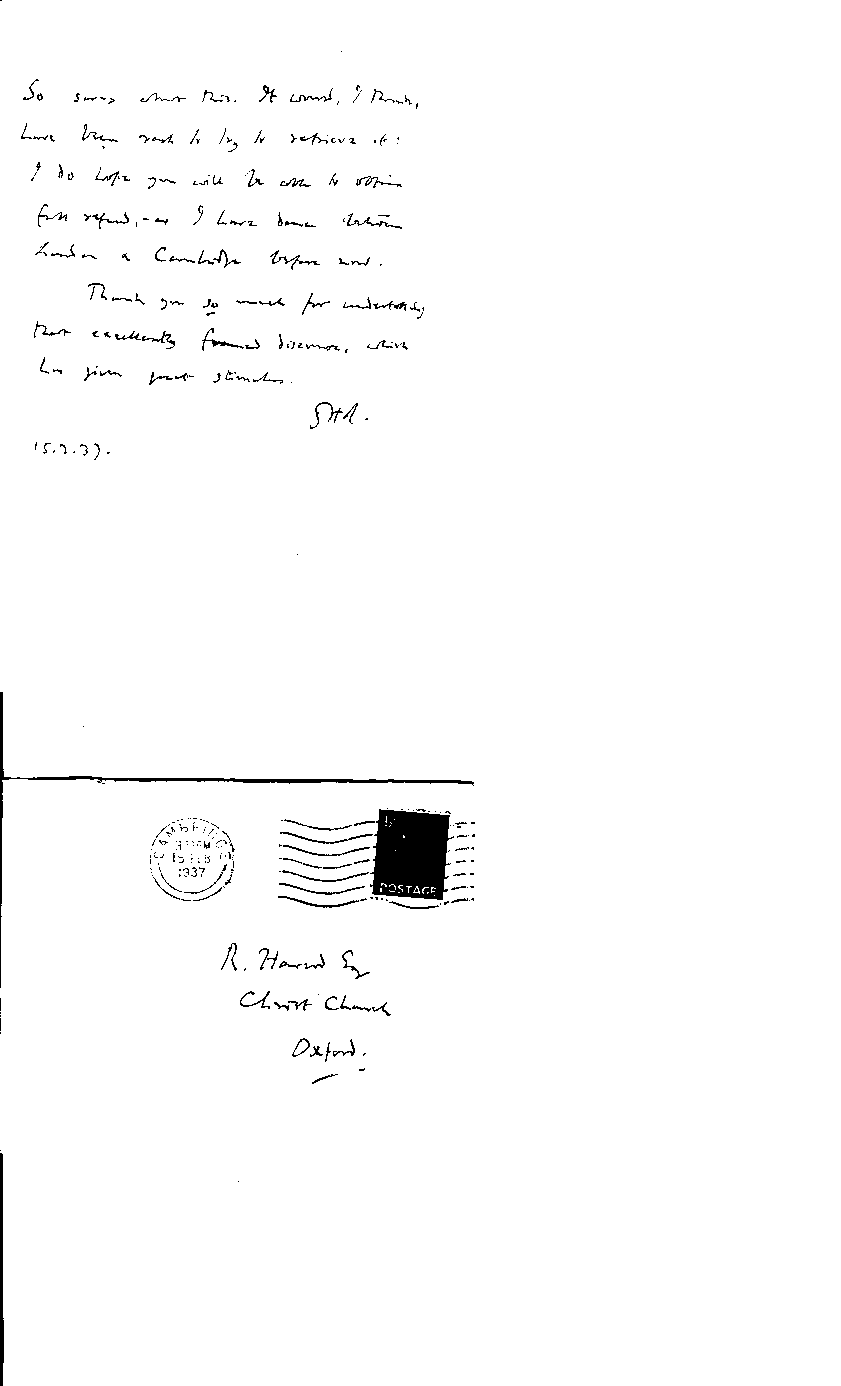 So sorry about this. It would, I think,
have been rash to try to retrieve it:
I do hope you will be able to obtain
full refund, - as I have done between
London & Cambridge before now.
Thank you so much for undertaking
that excellently framed discourse, which
has given great stimulus.
15.2.37.
CAMBRIDGE
15 FEB
1937
POSTAGE
R. Esq
Christ Church
Oxford.